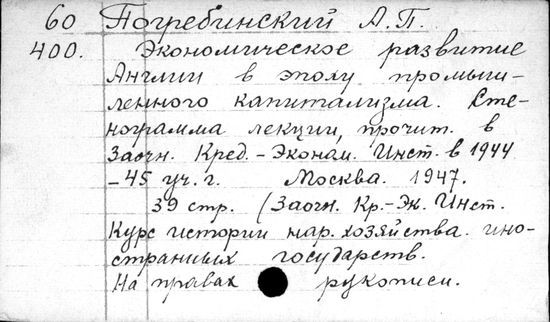 60 Погребинский А.П.
400. Экономическое развитие
Англии в эпоху промыш-
ленного капитализма. Сте-
нограмма лекции, прочит. в
Заочн. Кред.-Эконом. Инст. в 1944
-45 уч. г. Москва. 1947.
39 стр. (Заочн. Кр.-Эк. Инст.
Курс истории нар. хозяйства ино-
странных государств.
На правах рукописи.